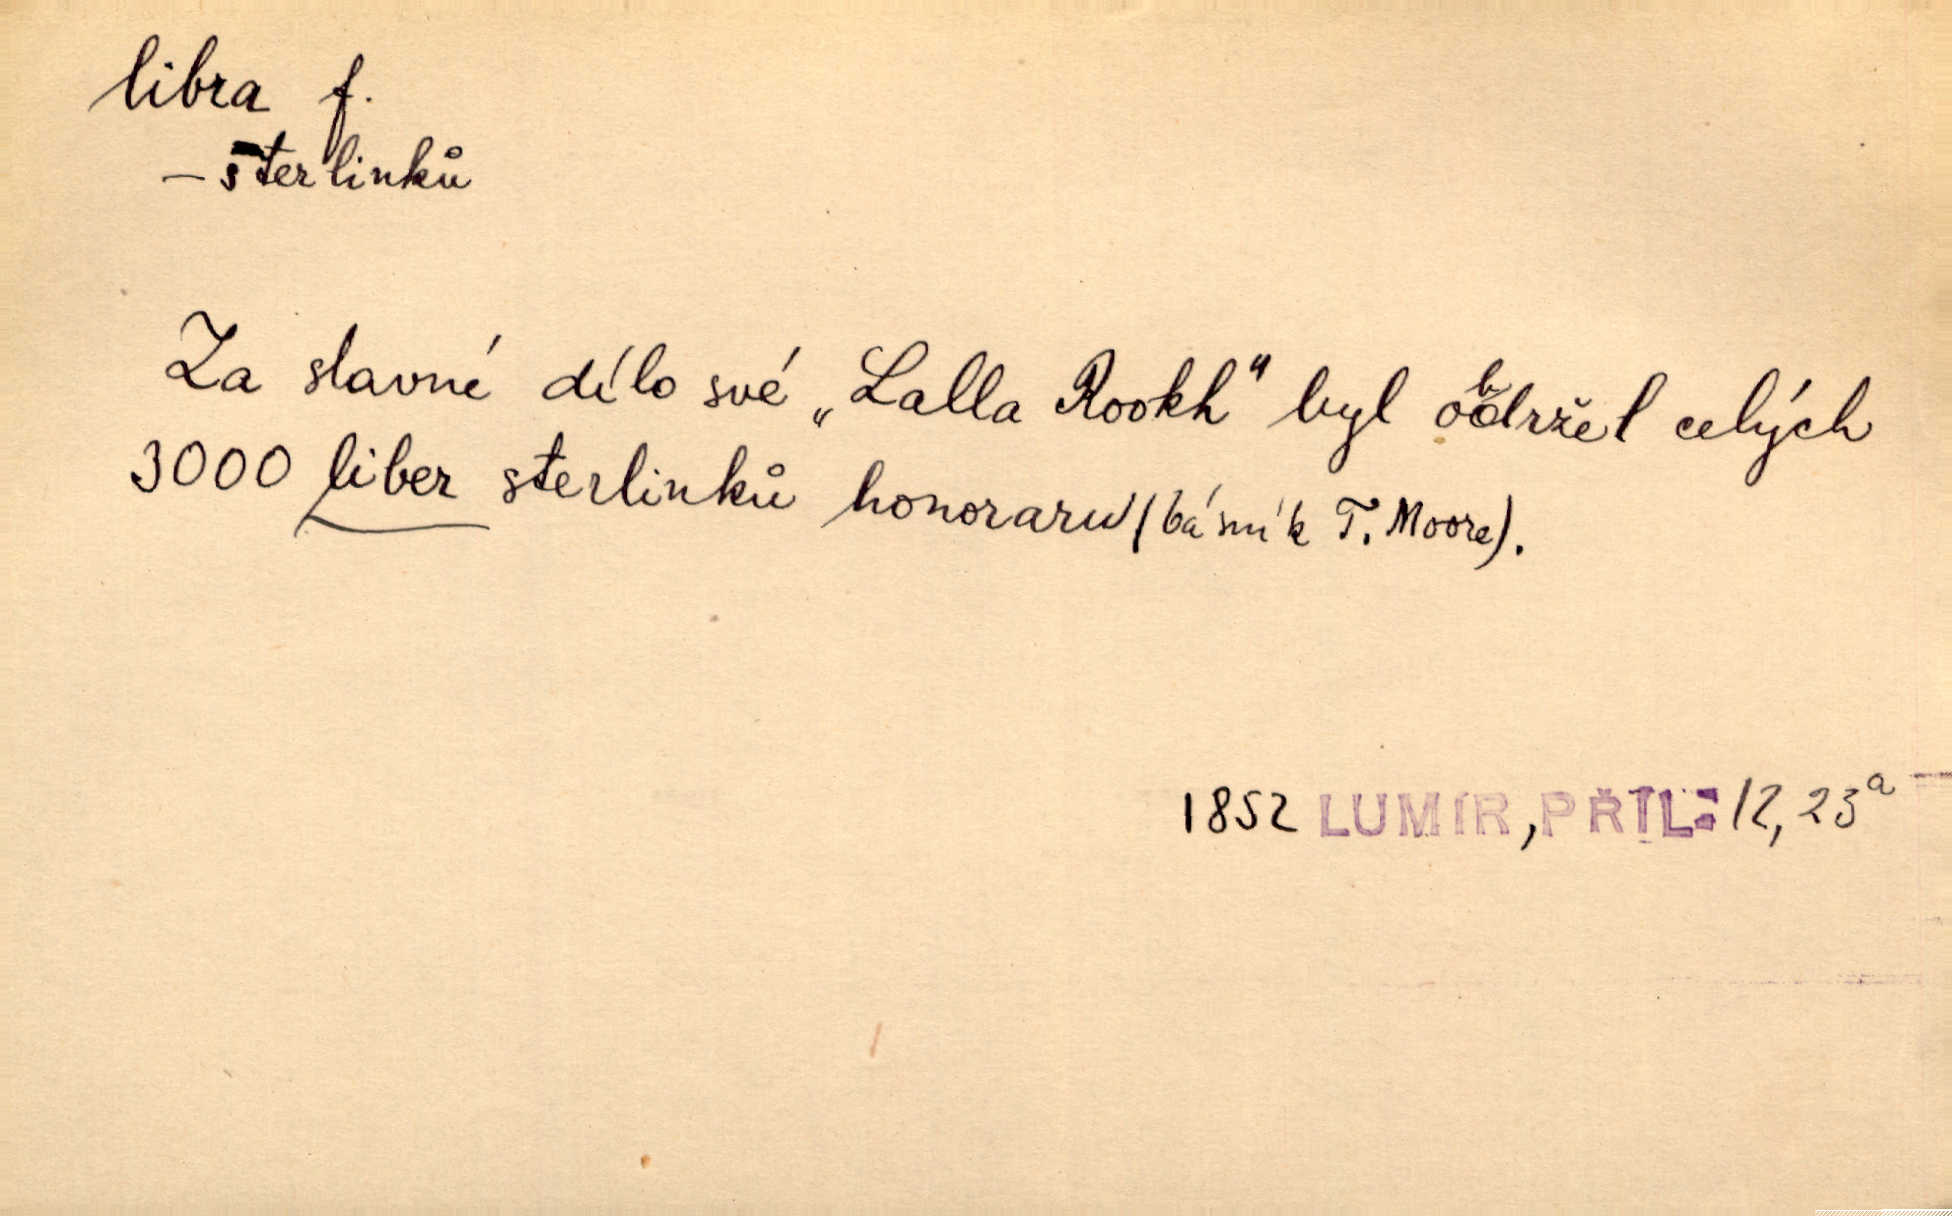 libra f.
– sterlinků
Za slavné dílo své „Lalla Rookh" byl obdržel celých
3000 liber sterlinků honoraru (básník T. Moore).
1852 LUMÍR, PŘÍL. 12, 23a